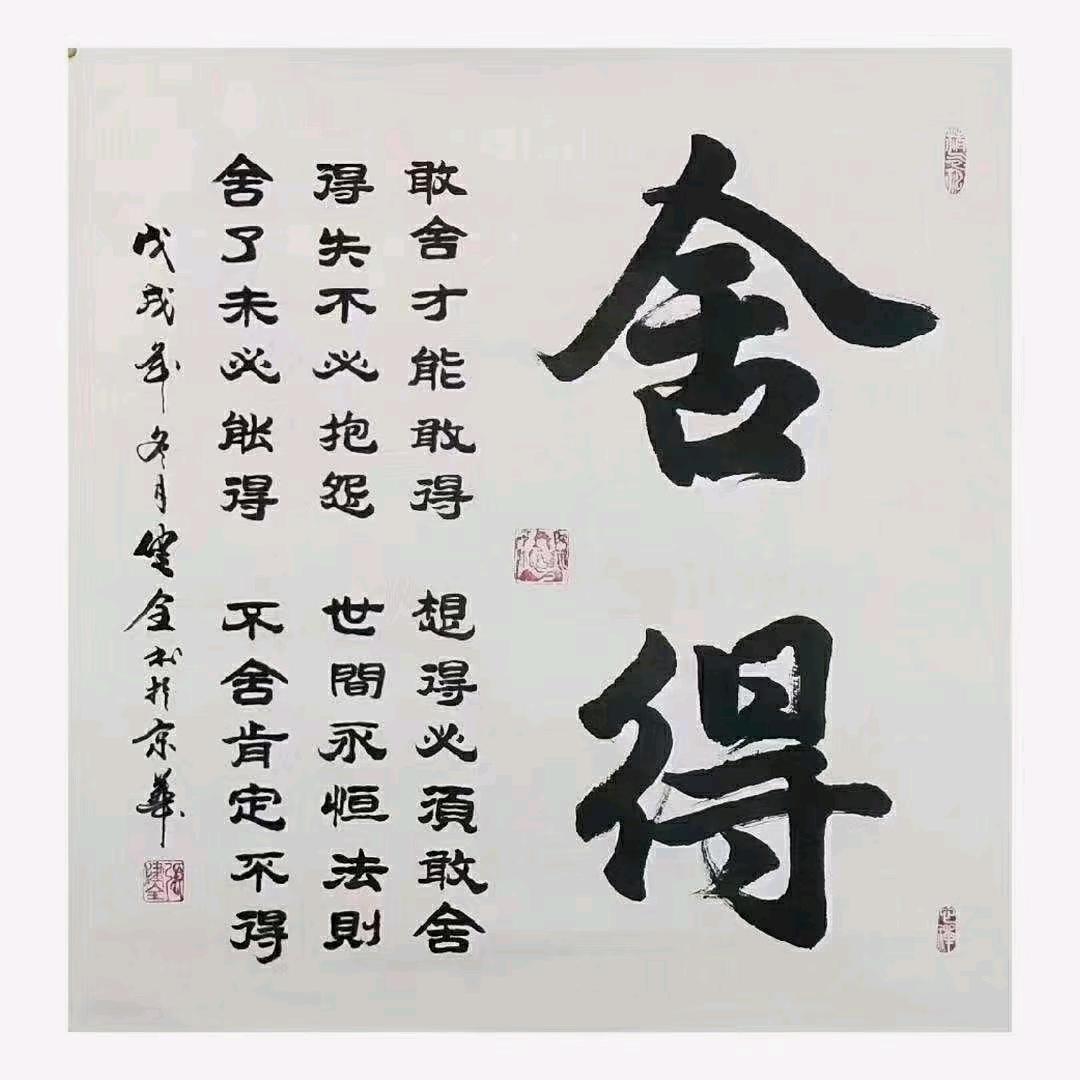 舍得
敢舍才能敢得 想得必須敢舍
得失不必抱怨 世間永恒法则
舍了未必能得 不舍肯定不得
戊戌年冬月健全书於京華